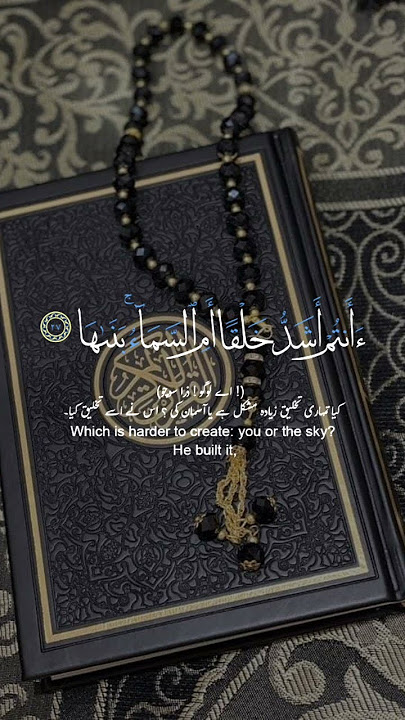 ءَأَنتُمْ أَشَدُّ خَلْقًا أَمِ ٱلسَّمَآءُ ۚ بَنَىٰهَا ٢٧
(! اے لوگو ! ذرا سوچو)
کیا تمہاری تخلیق زیادہ مشکل ہے یا آسمان کی ؟ اس نے اسے تخلیق کیا۔
Which is harder to create: you or the sky?
He built it,
القرآن الكريم